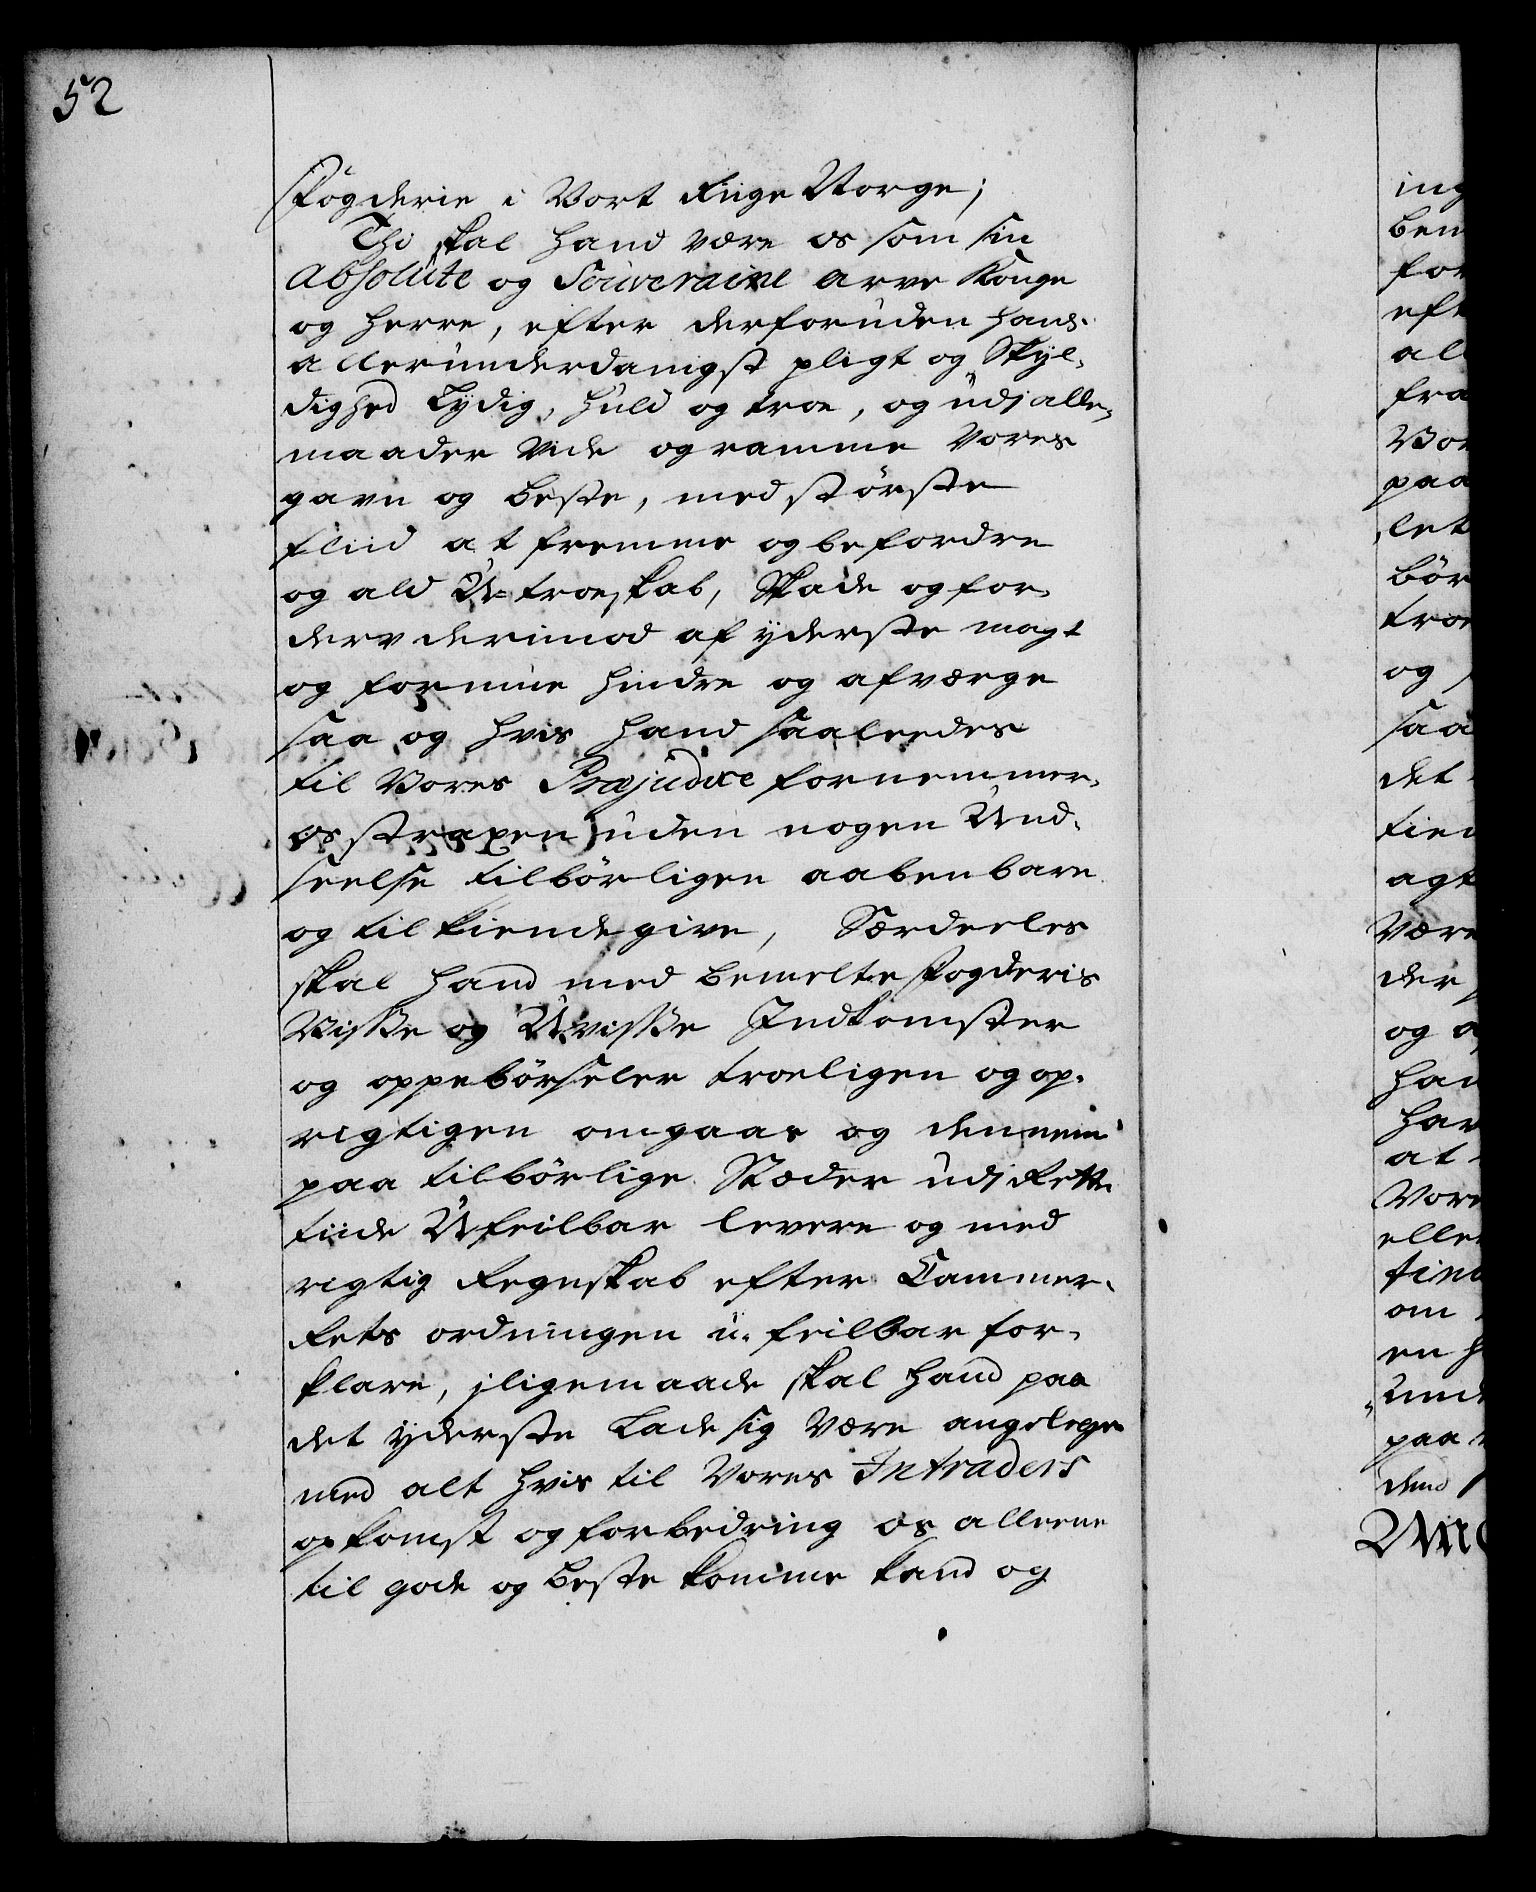 52
Fogderie i Vort Riige Norge;
Thi skal hand være os som sin
Absolute og Souveraine arve Konge
og Herre, efter derforuden hans
allerunderdanigst pligt og Skyl-
dighed Lydig, huld og troe, og udj alle
maader vide og ramme Vores
gavn og beste, med störste
fliid at fremme og befordre
og ald U-troeskab, Skade og for-
derv derimod af yderste magt
og formue hindre og afværge
saa og hvis hand saaleedes
til Vores Præjudice fornemmer,
os straxen uden nogen Und-
seelse tilbörligen aabenbare
og tilkiendegive, Særdeeles
skal hand med bemelte Fogderis
Visse og Uvisse Indkomster
og oppebörseler troeligen og op-
rigtigen omgaaes og dennem
paa tilbörlige Stæder udj Rette
tiide Ufeilbar levere og med
rigtig Regnskab efter Cammer-
Rets ordningen u-feilbar for-
klare, jligemaade skal hand paa
det yderste Lade sig være angelegen
med alt hvis til Vores Intraders
opkomst og forbedring os alleene
til gode og beste komme kand og
ing
ben
for
eft
all
fra
Vor
paa
let
bör
troe
og
saa
det
tien
agt
Være
der
og
han
har
at
Vore
eller
tind
om
en
Und
paa
dend